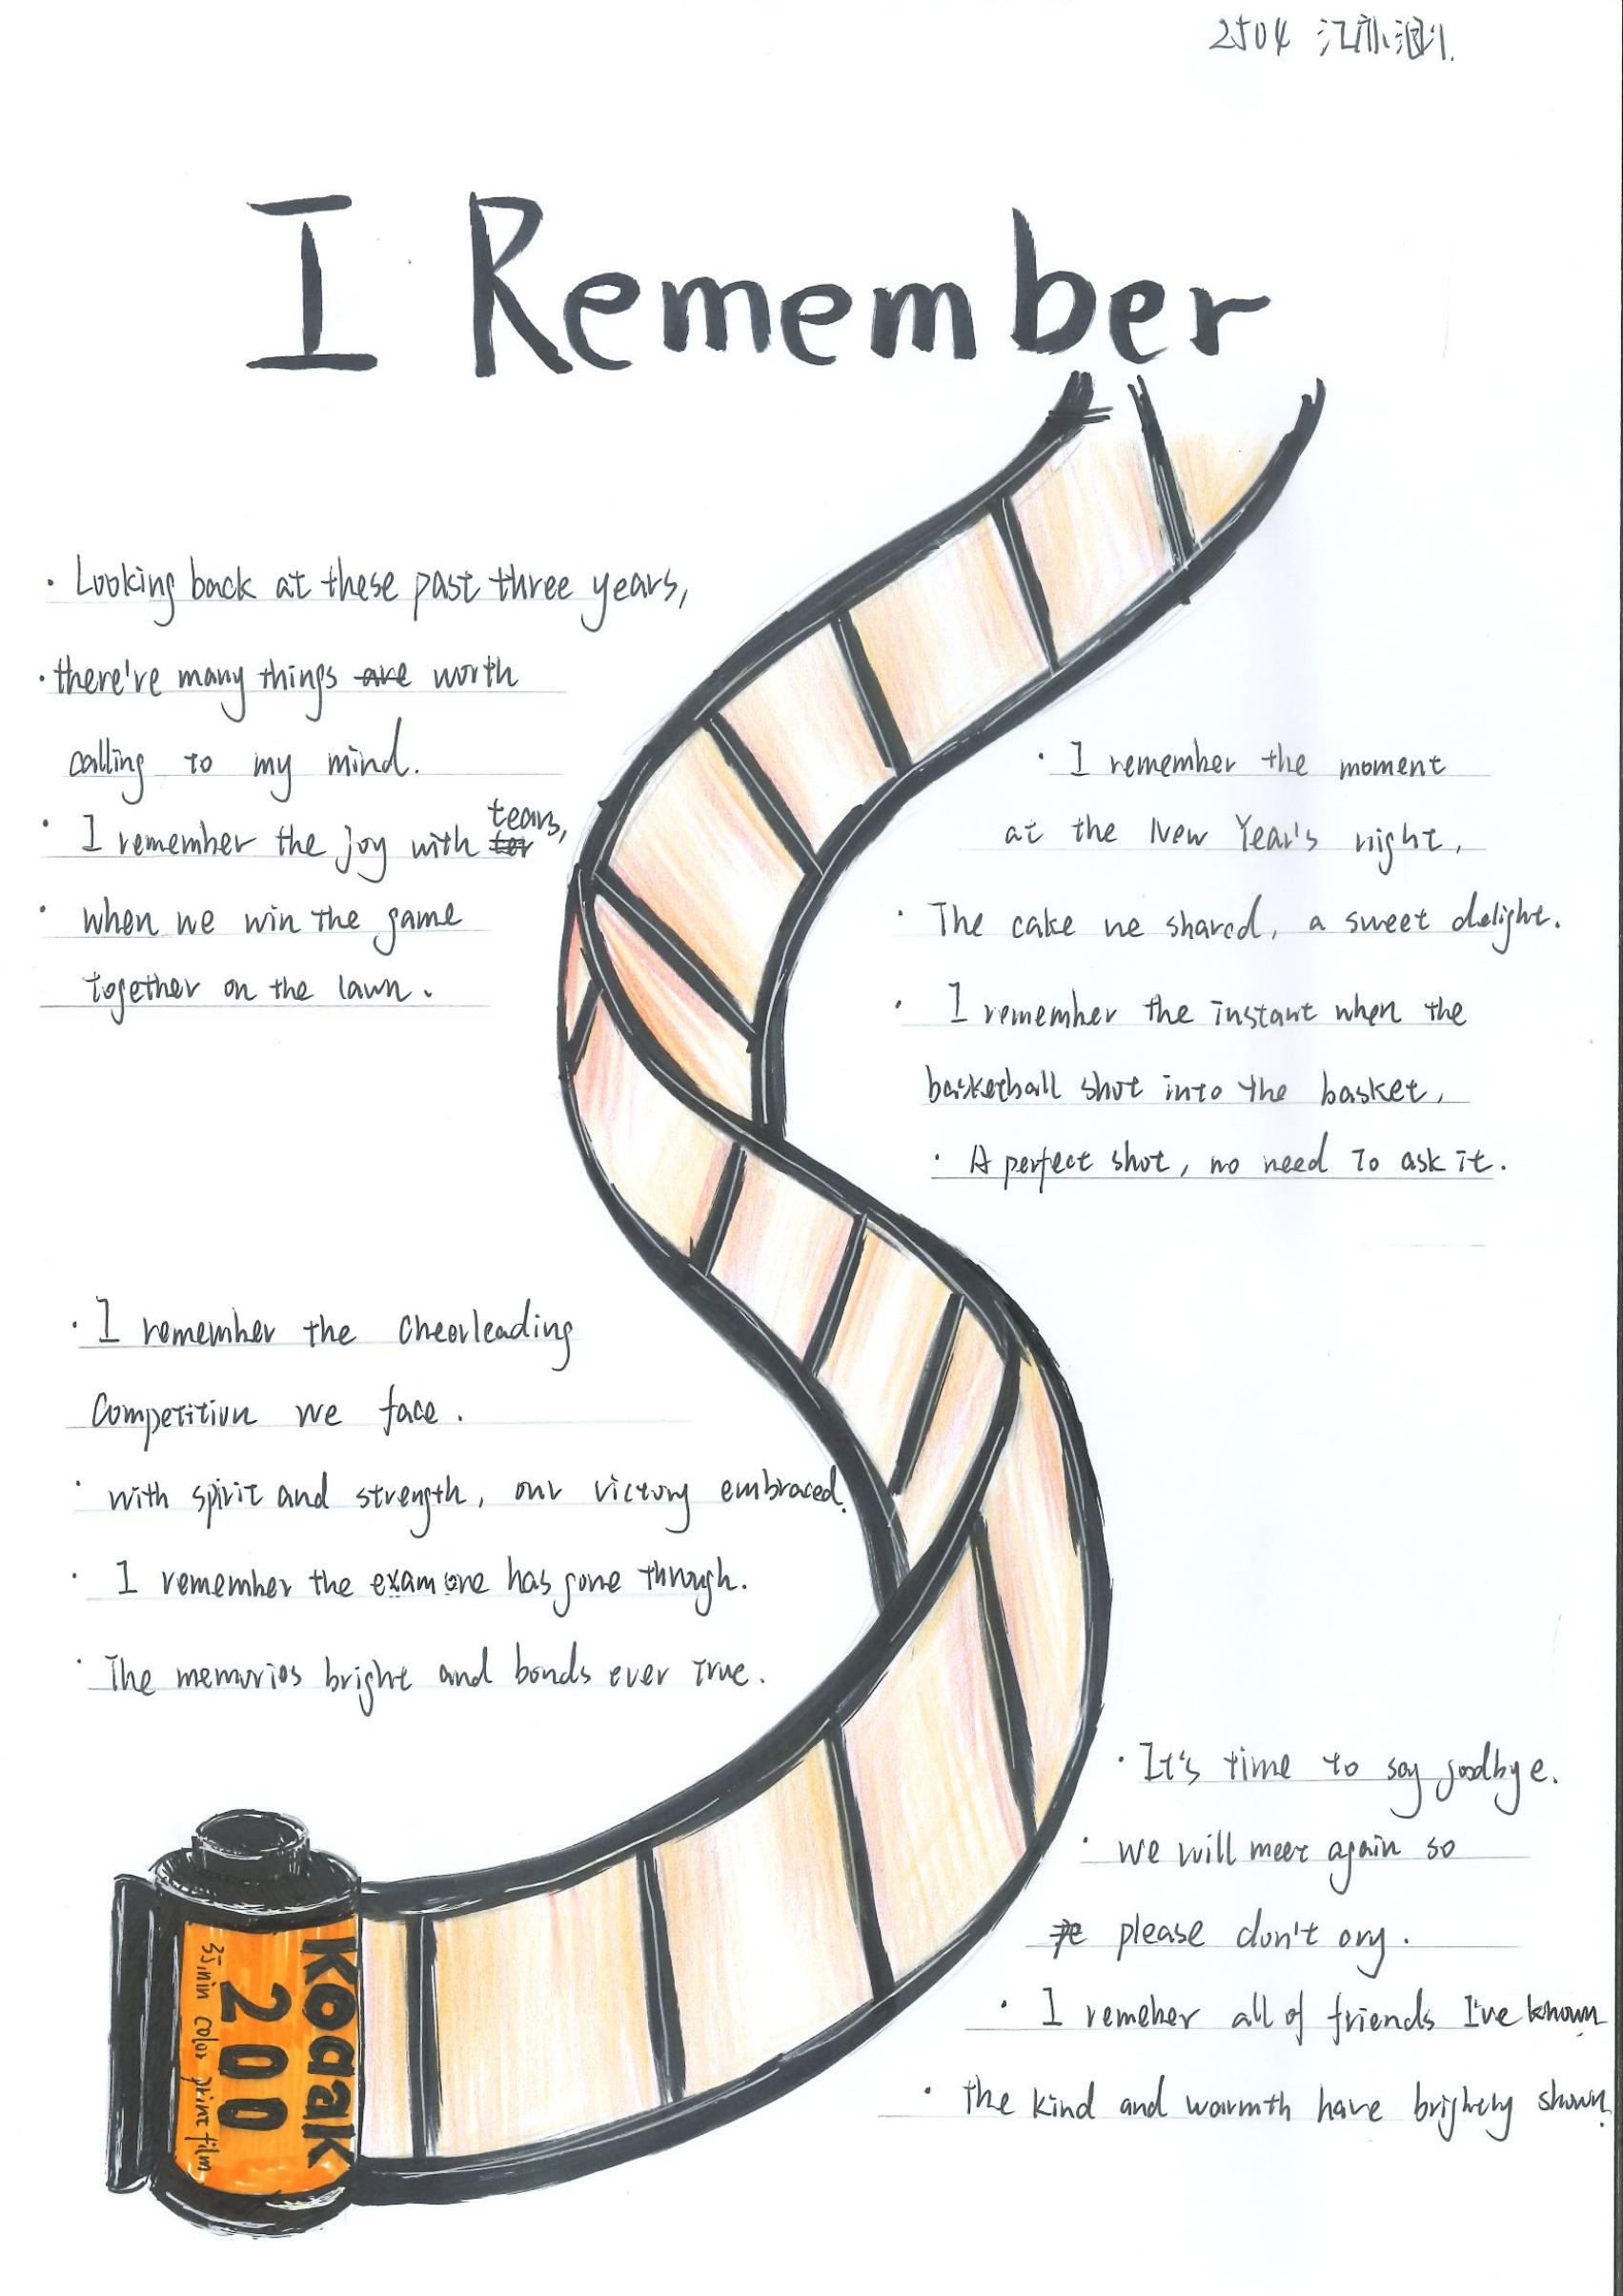 2504 江苏润.
I Remember
· Looking back at these past three years,
· there're many things are worth
calling to my mind.
· I remember the joy with tears,
· when we win the game
together on the lawn.
· I remember the moment
at the New Year's night,
· The cake we shared, a sweet delight.
· I remember the instant when the
basketball shot into the basket,
· A perfect shot, no need To ask it.
· I remember the Cheerleading
Competition we face.
· with spirit and strength, our victory embraced.
· I remember the exam one has gone through.
· The memories bright and bonds ever True.
· It's time to say goodbye.
· we will meet again so
please don't cry.
· I remeber all of friends I've known
· The kind and warmth have brightly shown.
Kodak
200
35min color print film